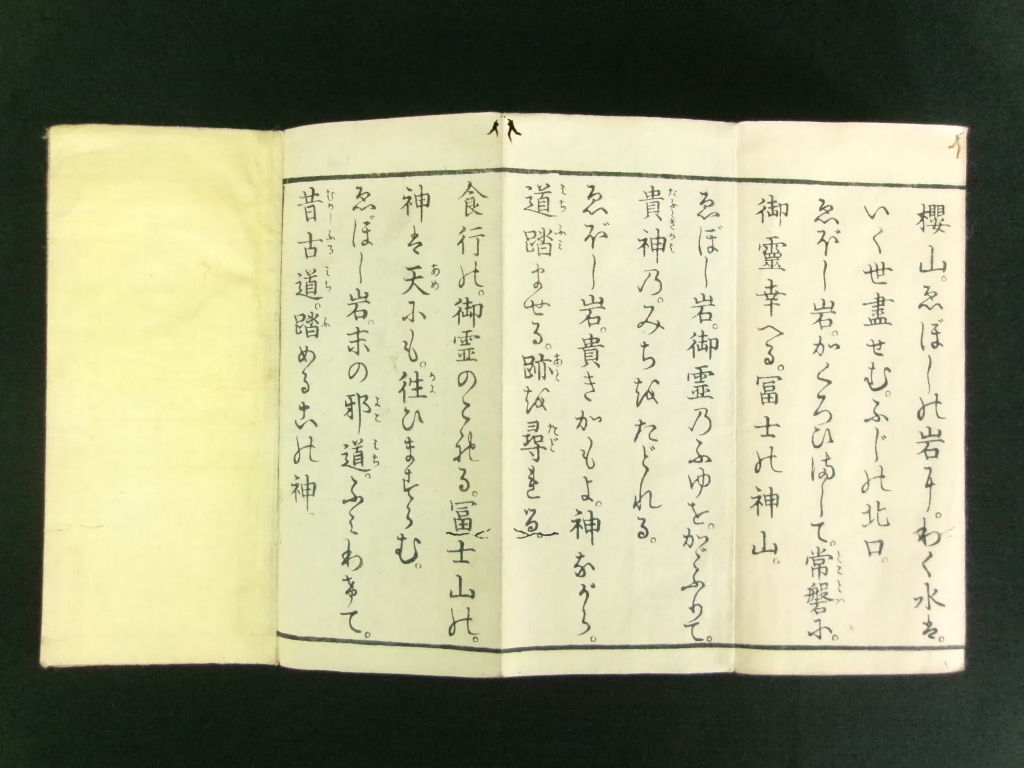 櫻山。ゑぼしの岩に。わく水は。
いく世盡せむ。ふじの北口。
ゑぼし岩。かくろひまして。常磐に。
御靈幸へる。冨士の神山。
ゑぼし岩。御霊乃ふゆを。かゞふりて。
貴神乃。みちをたどれる。
ゑぼし岩。貴きかもよ。神ながら。
道踏ませる。跡を尋
食行の。御霊のこれる。冨士山の。
神は天にも。徃ひますらむ。
ゑぼし岩。末の邪道。ふみわけて。
昔古道。踏めるこの神